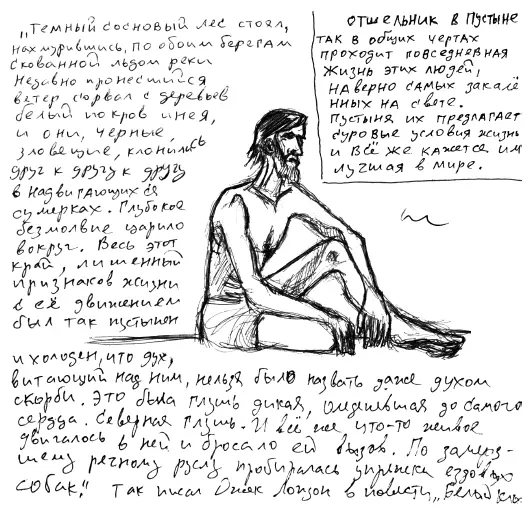 „Темный сосновый лес стоял,
нахмурившись, по обоим берегам
скованной льдом реки
Недавно пронесшийся
ветер сорвал с деревьев
белый покров инея,
и они, черные,
зловещие, клонились
друг к другу к другу
в надвигающихся
сумерках. Глубокое
безмолвие царило
вокруг. Весь этот
край, лишенный
признаков жизни
с её движением
был так пустынен
и холоден, что дух,
витающий над ним, нельзя было назвать даже духом
скорби. Это была глушь дикая, оледеневшая до самого
сердца. Северная глушь. И всё же что-то живое
двигалось в ней и бросало ей вызов. По замерз-
шему речному руслу пробиралась упряжка ездовых
собак." Так писал Джек Лондон в повести „Белый клы
отшельник в Пустыне
так в общих чертах
проходит повседневная
жизнь этих людей,
наверно самых закалё
нных на свете.
Пустыня их предлагает
суровые условия жизни
и всё же кажется им
лучшая в мире.